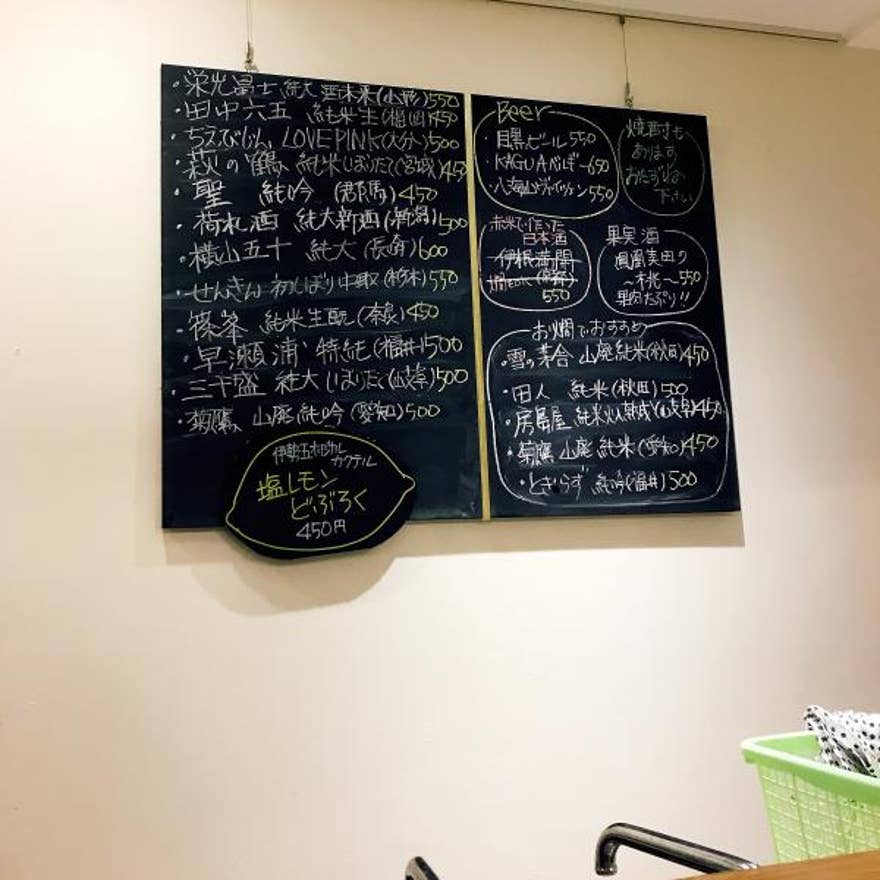 ・栄光冨士 純大 酒未来(山形)550
・田中六五 純米生(福岡)450
・ちえびじん LOVE PINK(大分)500
・萩の鶴 純米しぼりたて(宮城)450
・聖 純吟 (群馬)450
・荷札酒 純大新酒(新潟)500
・横山五十 純大(長崎)600
・せんきん 初しぼり中取(栃木)550
・篠峯 純米生酛(奈良)450
・早瀬浦 特純(福井)500
・三千盛 純大 しぼりたて(岐阜)500
・菊鷹 山廃純吟(愛知)500
塩レモン
どぶろく
450円
カクテル
Beer
・目黒ビール550
・KAGUAベルギー650
・八海山ヴァイツェン550
焼酎も
あります
おたずね
下さい
赤米で作った
日本酒
伊根満開
550
果実酒
鳳凰美田の
〜桃〜550
果肉たっぷり!!
お燗でおすすめ
・雪の茅舎 山廃純米(秋田)450
・田人 純米(秋田)500
・房島屋 純米火入熟成(岐阜)450
・菊鷹 山廃 純米(愛知)450
・とぎらず 純吟(福井)500